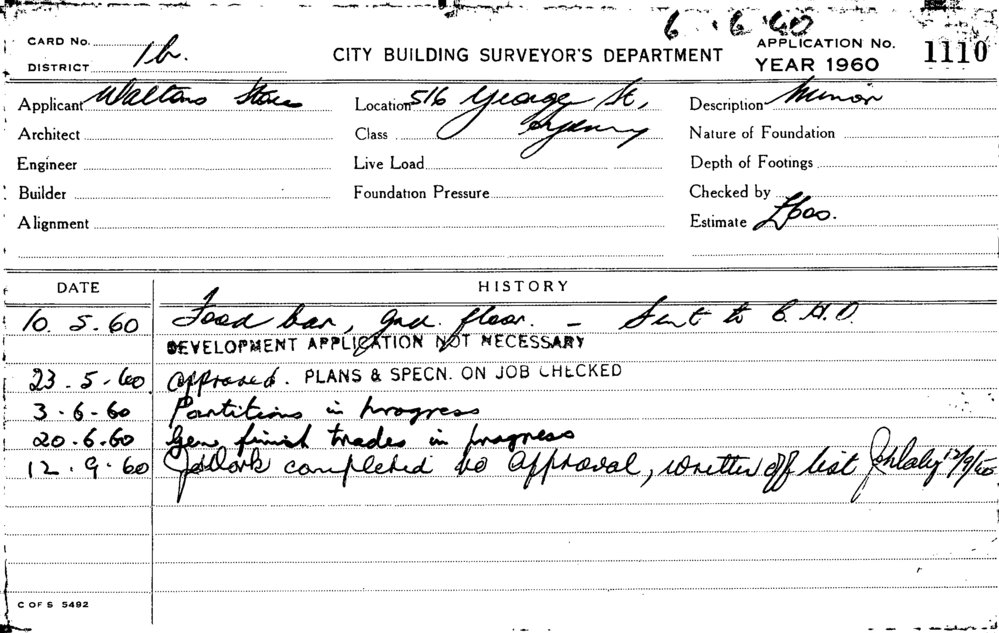 6 . 6 . 60
CARD No.
DISTRICT 1b.
CITY BUILDING SURVEYOR'S DEPARTMENT
APPLICATION No. 1110
YEAR 1960
Applicant Waltons Stores Location 516 George St, Description Minor
Architect Class Sydney Nature of Foundation
Engineer Live Load Depth of Footings
Builder Foundation Pressure Checked by
Alignment Estimate
DATE HISTORY
10. 5. 60 Food bar, gnd. floor. – Sent to C.H.O.
DEVELOPMENT APPLICATION NOT NECESSARY
23 . 5 . 60 approved. PLANS & SPECN. ON JOB CHECKED
3 . 6 . 60 Partitions in progress
20 . 6 . 60 Gen. finish trades in progress
12 . 9 . 60 Work completed to approval, written off list 12/9/60
C OF S 5492